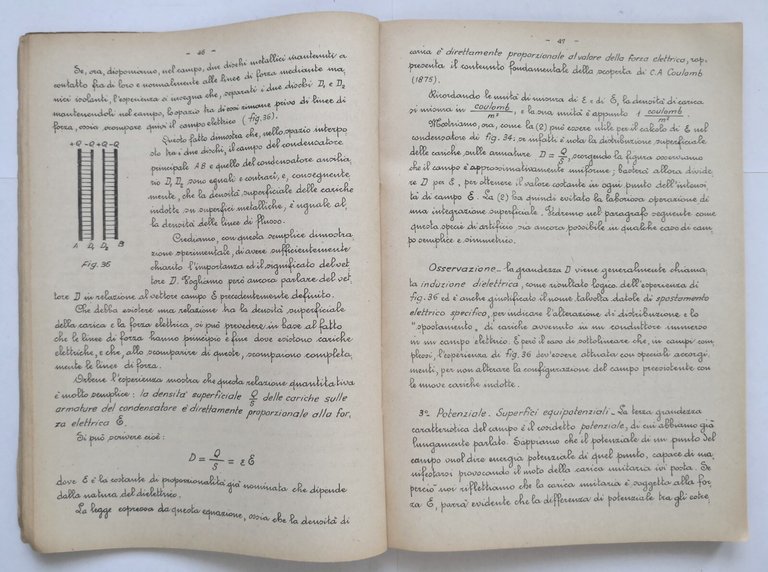 - 46 -
Se, ora, disponiamo, nel campo, due dischi metallici mantenuti a
contatto fra di loro e normalmente alle linee di forza mediante ma,
nici isolanti, l'esperienza ci insegna che, separati i due dischi D₁ e D₂
mantenendoli nel campo, lo spazio tra di essi rimane privo di linee di
forza, ossia scompare quivi il campo elettrico (fig. 36).
Questo fatto dimostra che, nello spazio interpo
sto tra i due dischi, il campo del condensatore
principale AB e quello del condensatore ausilia,
rio D₁ D₂ sono eguali e contrari, e, conseguente
mente, che la densità superficiale delle cariche
indotte su superfici metalliche, è uguale al,
la densità delle linee di flusso.
+Q -Q +Q -Q
A D₁ D₂ B
Fig. 36
Crediamo, con questa semplice dimostra,
zione sperimentale, di avere sufficientemente
chiarito l'importanza ed il significato del vet
tore D. Vogliamo però ancora parlare del vet,
tore D in relazione al vettore campo Ɛ precedentemente definito.
Che debba esistere una relazione tra la densità superficiale
della carica e la forza elettrica, si può prevedere in base al fatto
che le linee di forza hanno principio e fine dove esistono cariche
elettriche, e che, allo scomparire di queste, scompaiono completa,
mente le linee di forza.
Orbene l'esperienza mostra che questa relazione quantitativa
è molto semplice: la densità superficiale Q/S delle cariche sulle
armature del condensatore è direttamente proporzionale alla for,
za elettrica Ɛ.
Si può scrivere cioè:
D = Q/S = ε Ɛ
dove ε è la costante di proporzionalità già nominata che dipende
dalla natura del dielettrico.
La legge espressa da questa equazione, ossia che la densità di
- 47 -
carica è direttamente proporzionale al valore della forza elettrica, rap,
presenta il contenuto fondamentale della scoperta di C.A Coulomb
(1875).
Ricordando le unità di misura di ε e di Ɛ, la densità di carica
si misura in coulomb/m², e la sua unità è appunto 1 coulomb/m²
Mostriamo, ora, come la (2) può essere utile per il calcolo di Ɛ nel
condensatore di fig. 34; se infatti è nota la distribuzione superficiale
delle cariche sulle armature D = Q/S, scorgendo la figura osserviamo
che il campo è approssimativamente uniforme; basterà allora divide
re D per ε, per ottenere il valore costante in ogni punto dell'intensi
tà di campo Ɛ. La (2) ha quindi evitato la laboriosa operazione di
una integrazione superficiale. Vedremo nel paragrafo seguente come
questa specie di artificio sia ancora possibile in qualche caso di cam
po semplice e simmetrico.
Osservazione - la grandezza D viene generalmente chiama,
ta induzione dielettrica, come risultato logico dell'esperienza di
fig. 36 ed è anche giustificato il nome talvolta datole di spostamento
elettrico specifico, per indicare l'alterazione di distribuzione e lo
"spostamento„ di cariche avvenuto in un conduttore immerso
in un campo elettrico. È però il caso di sottolineare che, in campi com,
plessi, l'esperienza di fig. 36 dev'essere attuata con speciali accorgi,
menti, per non alterare la configurazione del campo preesistente con
le nuove cariche indotte.
3º- Potenziale. Superfici equipotenziali - La terza grandezza
caratteristica del campo è il cosidetto potenziale, di cui abbiamo già
lungamente parlato. Sappiamo che il potenziale di un punto del
campo vuol dire energia potenziale di quel punto, capace di ma,
nifestarsi provocando il moto della carica unitaria ivi posta. Se
perciò noi riflettiamo che la carica unitaria è soggetta alla for,
za Ɛ, parrà evidente che la differenza di potenziale tra gli estre,